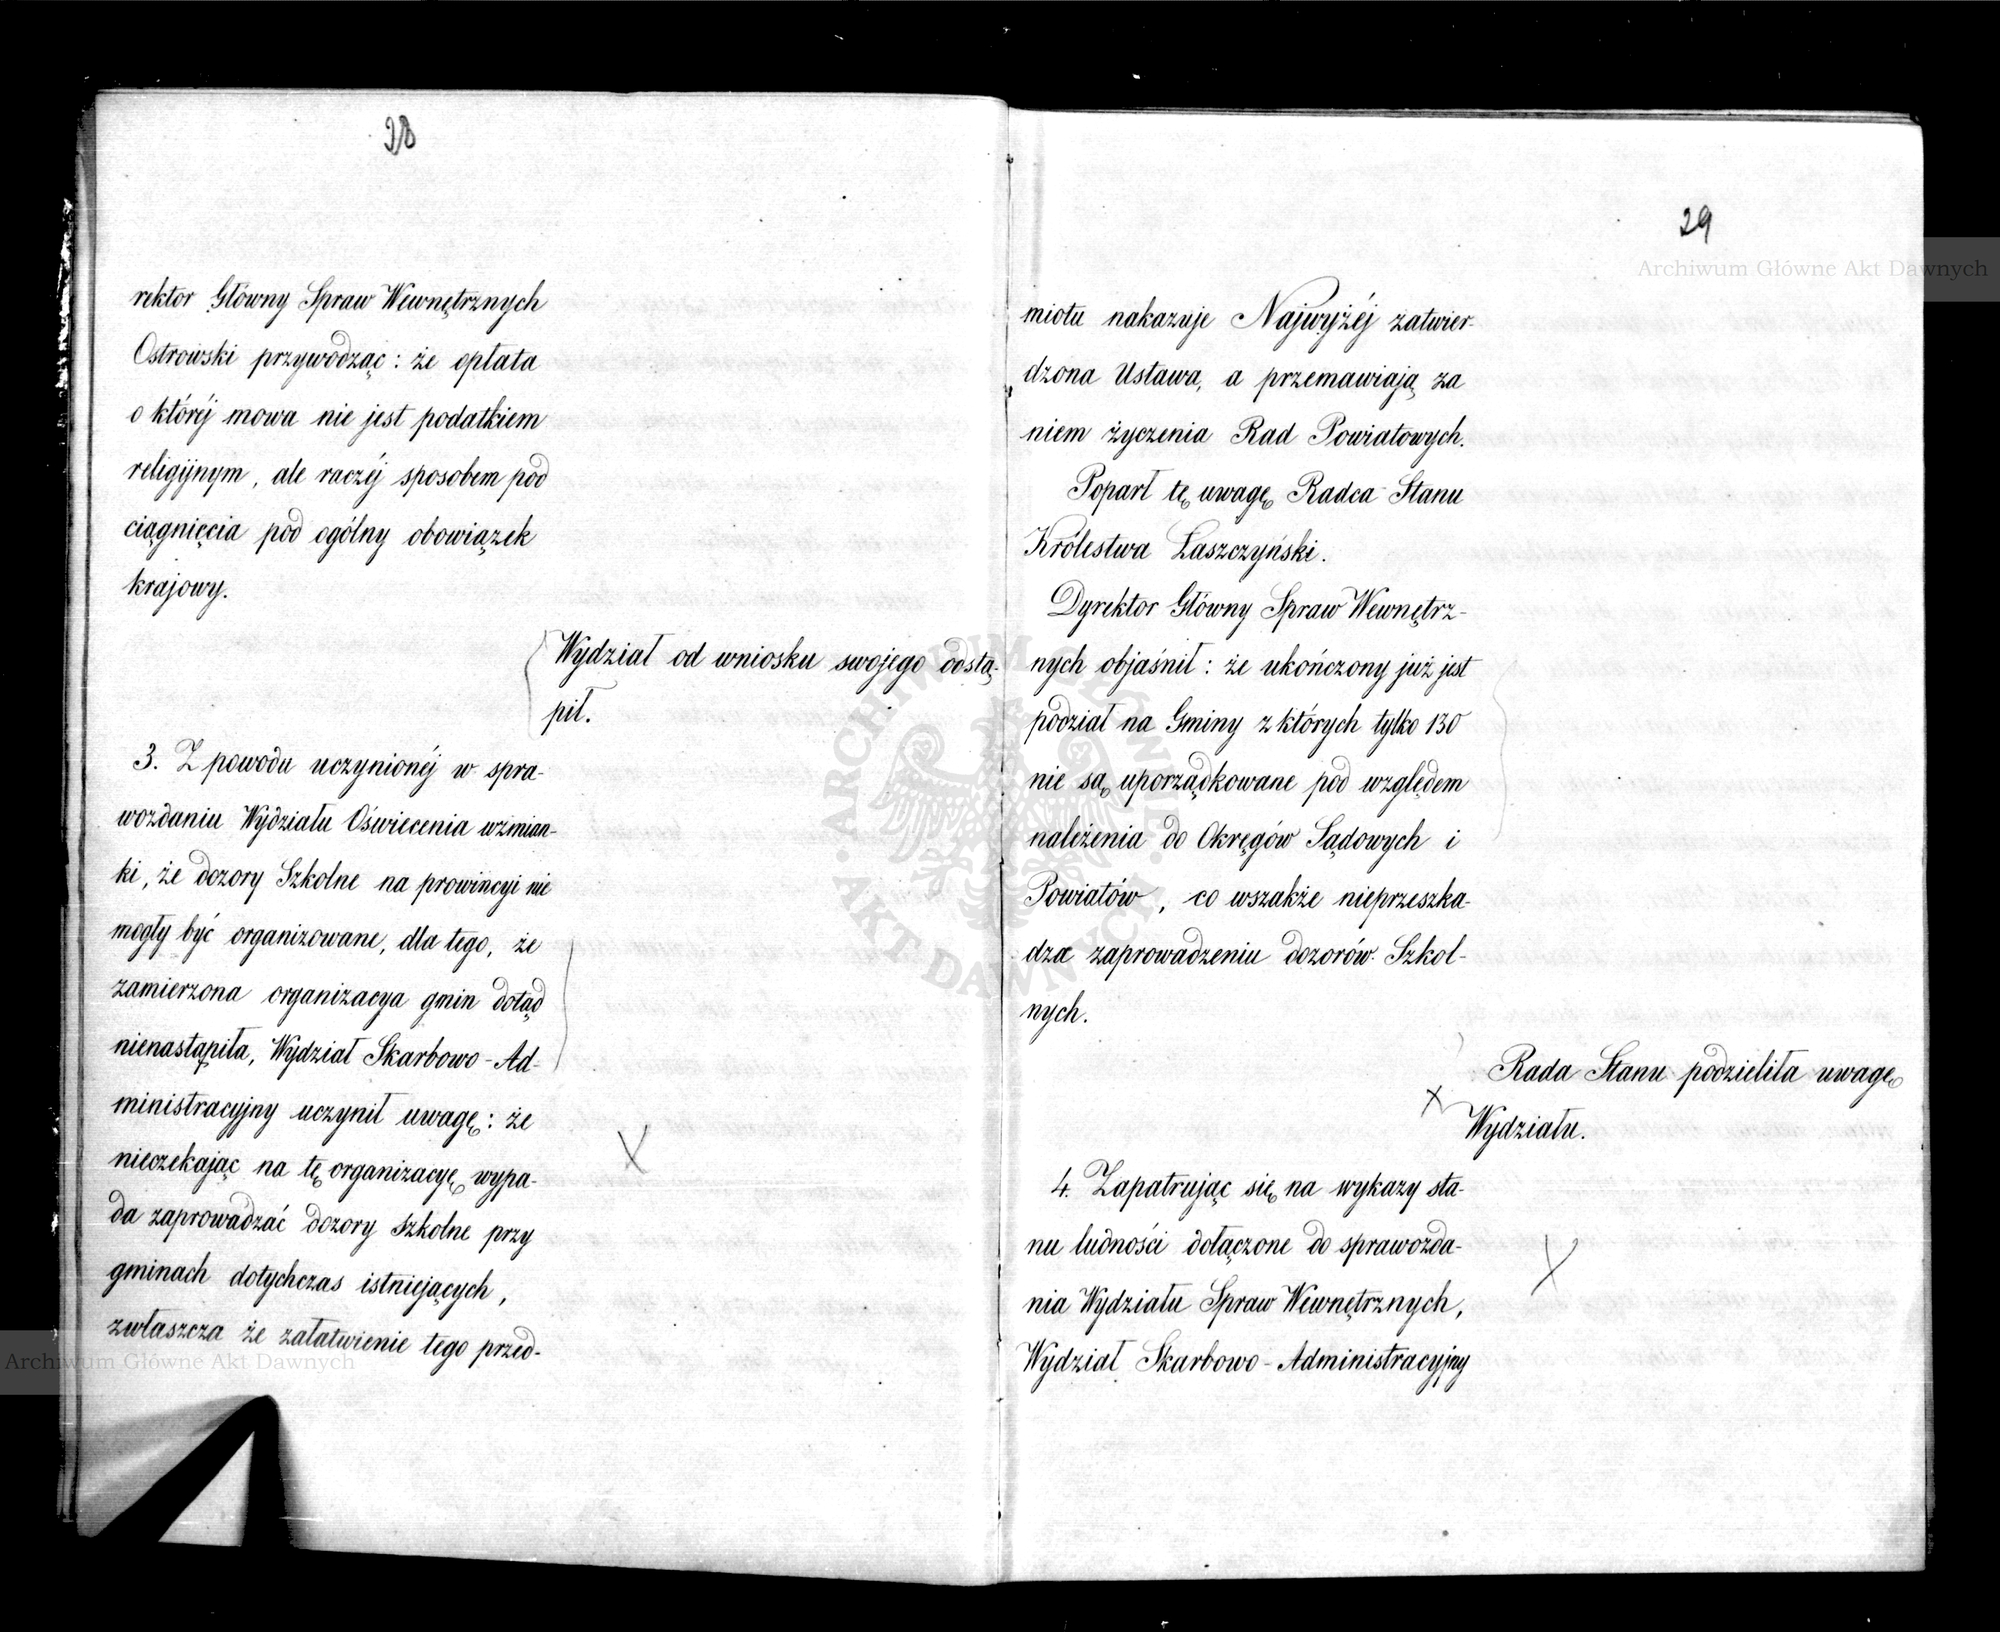 28
rektor Główny Spraw Wewnętrznych
Ostrowski przywodząc: że opłata
o któréj mowa nie jest podatkiem
religijnym, ale raczéj sposobem pod
ciągnięcia pod ogólny obowiązek
krajowy.
Wydział od wniosku swojego odstą-
pił.
3. Z powodu uczynionéj w spra-
wozdaniu Wydziału Oświecenia wzmian-
ki, że dozory Szkolne na prowincyi nie
mogły być organizowane, dla tego, że
zamierzona organizacya gmin dotąd
nienastąpiła, Wydział Skarbowo-Ad-
ministracyjny uczynił uwagę: że
nieczekając na tę organizacyę wypa-
da zaprowadzać dozory szkolne przy
gminach dotychczas istniejących,
zwłaszcza że załatwienie tego przed-
29
miotu nakazuje Najwyżéj zatwier-
dzona Ustawa, a przemawiają za
niem życzenia Rad Powiatowych.
Poparł tę uwagę Radca Stanu
Królestwa Łaszczyński.
Dyrektor Główny Spraw Wewnętrz-
nych objaśnił: że ukończony już jest
podział na Gminy z których tylko 130
nie są uporządkowane pod względem
należenia do Okręgów Sądowych i
Powiatów, co wszakże nieprzeszka-
dza zaprowadzeniu dozorów Szkol-
nych.
Rada Stanu podzieliła uwagę
Wydziału.
4. Zapatrując się na wykazy sta-
nu ludności dołączone do sprawozda-
nia Wydziału Spraw Wewnętrznych,
Wydział Skarbowo-Administracyjny
Archiwum Główne Akt Dawnych
Archiwum Główne Akt Dawnych
ARCHIWUM GŁÓWNE AKT DAWNYCH